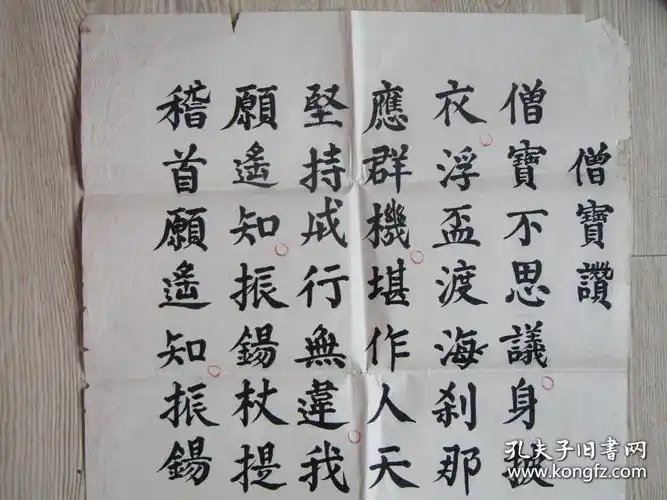 僧寶讚
僧寶不思議身
衣浮盃渡海刹那
應群機堪作人天
堅持戒行無違我
願遙知振錫杖提
稽首願遙知振錫
孔夫子旧书网
www.kongfz.com